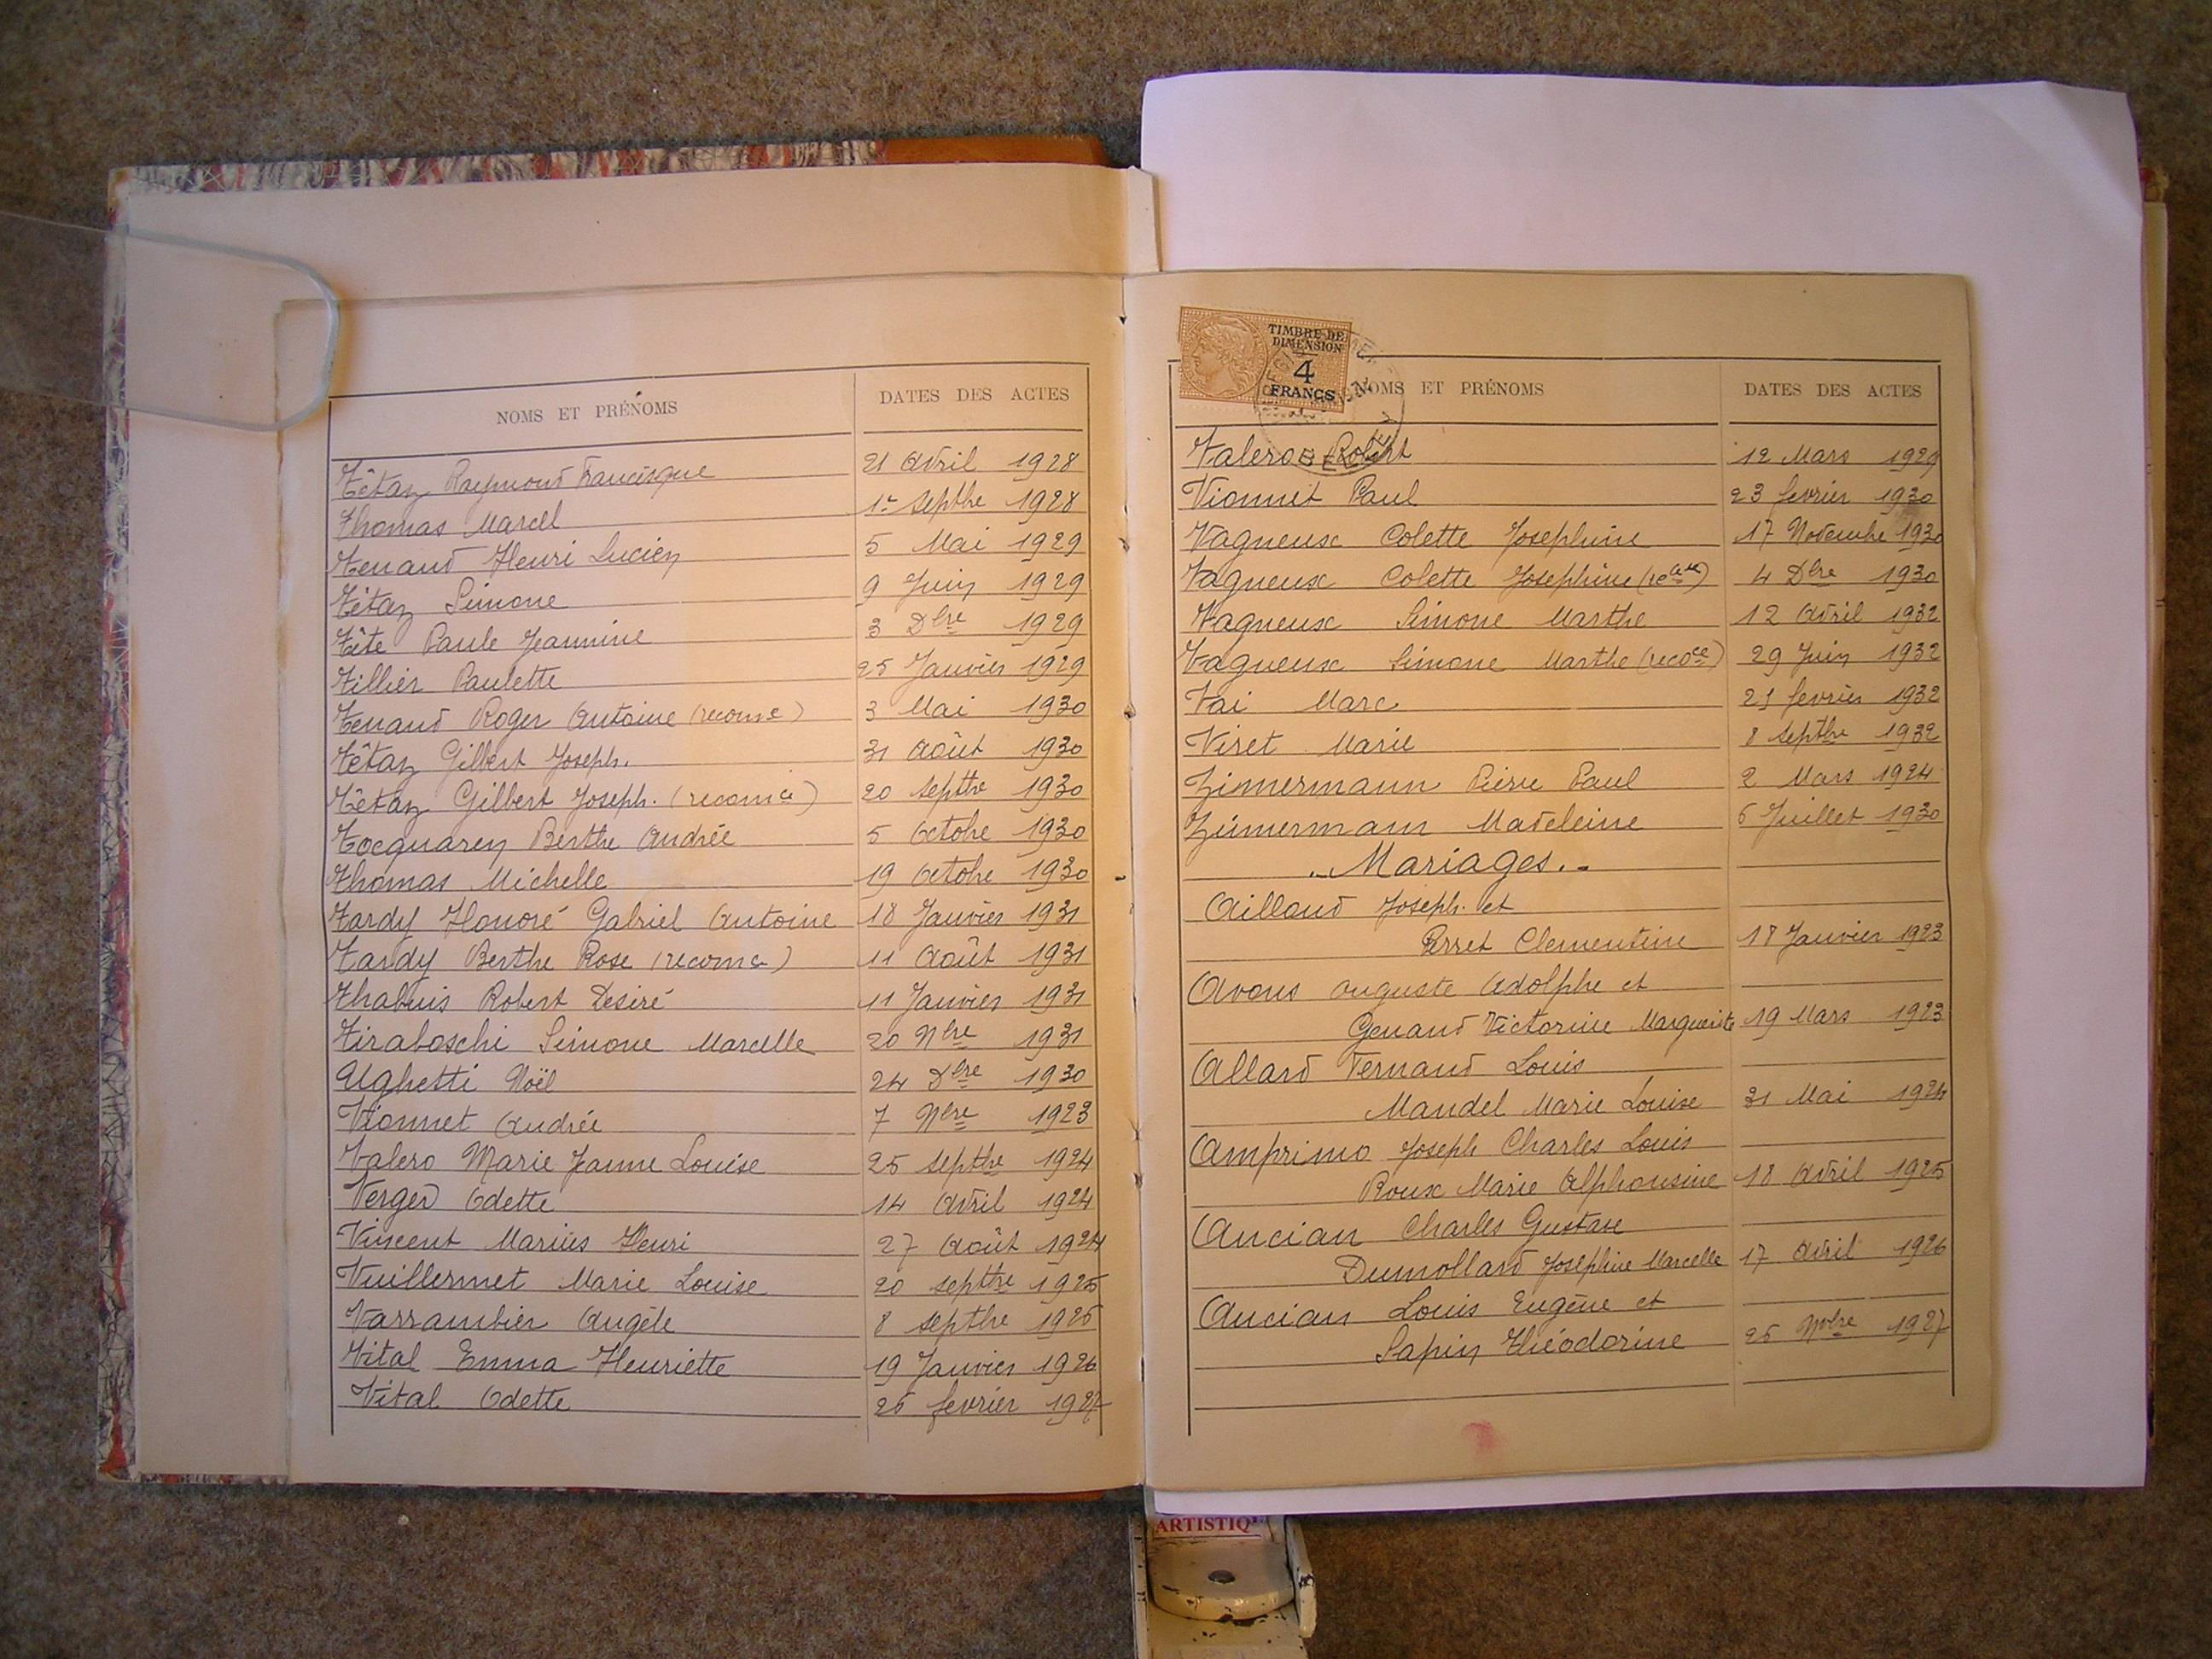 NOMS ET PRÉNOMS DATES DES ACTES
Têtaz Raymond Francisque 21 Avril 1928
Thomas Marcel 1er Septbre 1928
Tenand Henri Lucien 5 Mai 1929
Têtaz Simone 9 Juin 1929
Tête Paule Jeannine 3 Dbre 1929
Tillier Paulette 25 Janvier 1929
Tenand Roger Antoine 3 Mai 1930
Têtaz Gilbert Joseph. 31 Août 1930
Têtaz Gilbert Joseph. 20 Septbre 1930
Tocquaren Berthe Andrée 5 Octobre 1930
Thomas Michelle 19 Octobre 1930
Tardy Honoré Gabriel Antoine 18 Janvier 1931
Tardy Berthe Rose 11 Août 1931
Thabuis Robert Desiré 11 Janvier 1931
Tiraboschi Simone Marcelle 20 Nbre 1931
Ughetti Noël 24 Dbre 1930
Vionnet Andrée 7 Nbre 1923
Valero Marie Jeanne Louise 25 septbre 1924
Verger Odette 14 Avril 1924
Vincent Marius Henri 27 Août 1924
Vuillermet Marie Louise 20 septbre 1925
Varrambier Angèle 8 septbre 1925
Vital Emma Henriette 19 Janvier 1926
Vital Odette 25 fevrier 1927
TIMBRE DE
DIMENSION
4
FRANCS
NOMS ET PRÉNOMS DATES DES ACTES
Valero Robert 12 Mars 1929
Vionnet Paul 23 fevrier 1930
Vagneux Colette Josephine 17 Novembre 1930
Vagneux Colette Josephine 4 Dbre 1930
Vagneux Simone Marthe 12 Avril 1932
Vagneux Simone Marthe (recoce) 29 Juin 1932
Vai Marc 21 fevrier 1932
Viret Marie 8 septbre 1932
Zimermann Pierre Paul 2 Mars 1924
Zimermann Madeleine 6 Juillet 1930
Mariages.
Aillaud Joseph. et
Perret Clementine 18 Janvier 1923
Avons Auguste Adolphe et
Genand Victorine Marguerite 19 Mars 1923
Allard Fernand Louis
Mandel Marie Louise 31 Mai 1924
Amprimo Joseph Charles Louis
Roux Marie Alphonsine 18 Avril 1925
Ancian Charles Gustave
Dumollard Joséphine Marcelle 17 Avril 1926
Ancian Louis Eugène et
Sapin Théodorine 26 Nobre 1927
ARTISTIQ